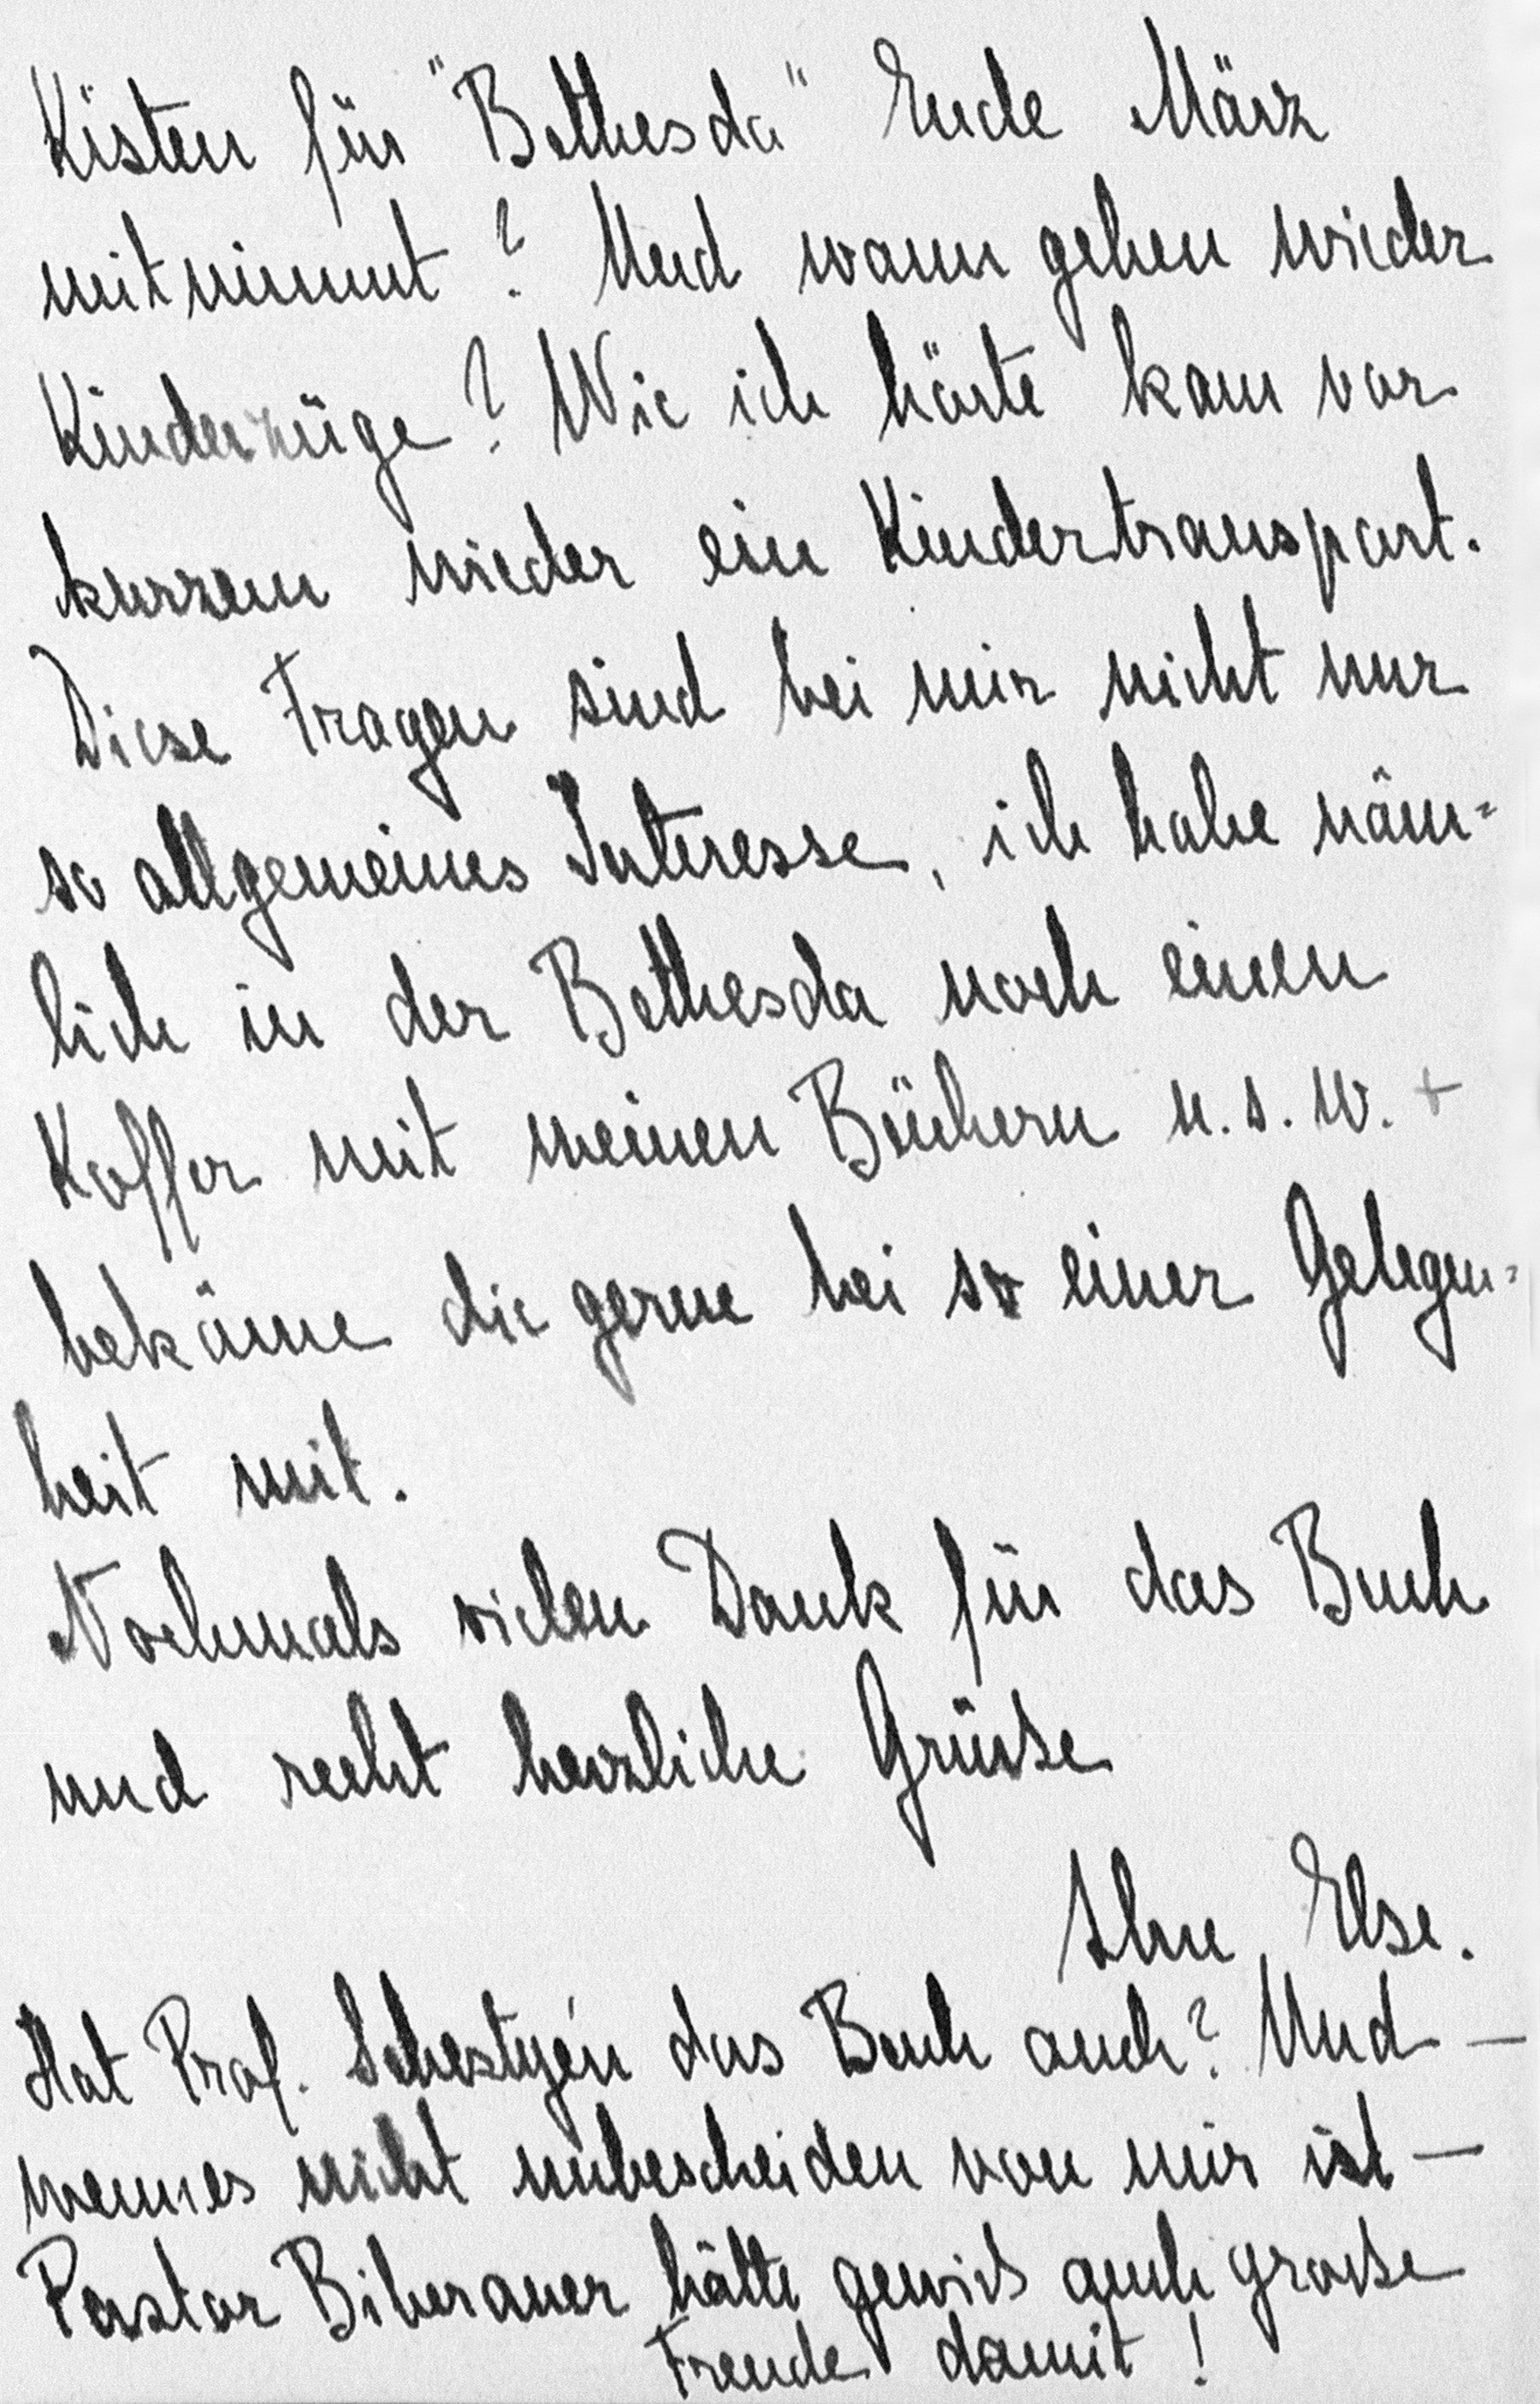 Kisten für "Bethesda" Ende März
mitnimmt? Und wann gehen wieder
Kinderzüge? Wie ich hörte kam vor
kurzem wieder ein Kindertransport.
Diese Fragen sind bei mir nicht nur
so allgemeines Interesse, ich habe näm=
lich in der Bethesda noch einen
Koffer mit meinen Büchern u.s.w. +
bekäme die gerne bei so einer Gelegen=
heit mit.
Nochmals vielen Dank für das Buch
und recht herzliche Grüße
Ihre Else.
Hat Prof. Sebestyén das Buch auch? Und –
wenn es nicht unbescheiden von mir ist –
Pastor Biberauer hätte gewiß auch große
Freude damit!